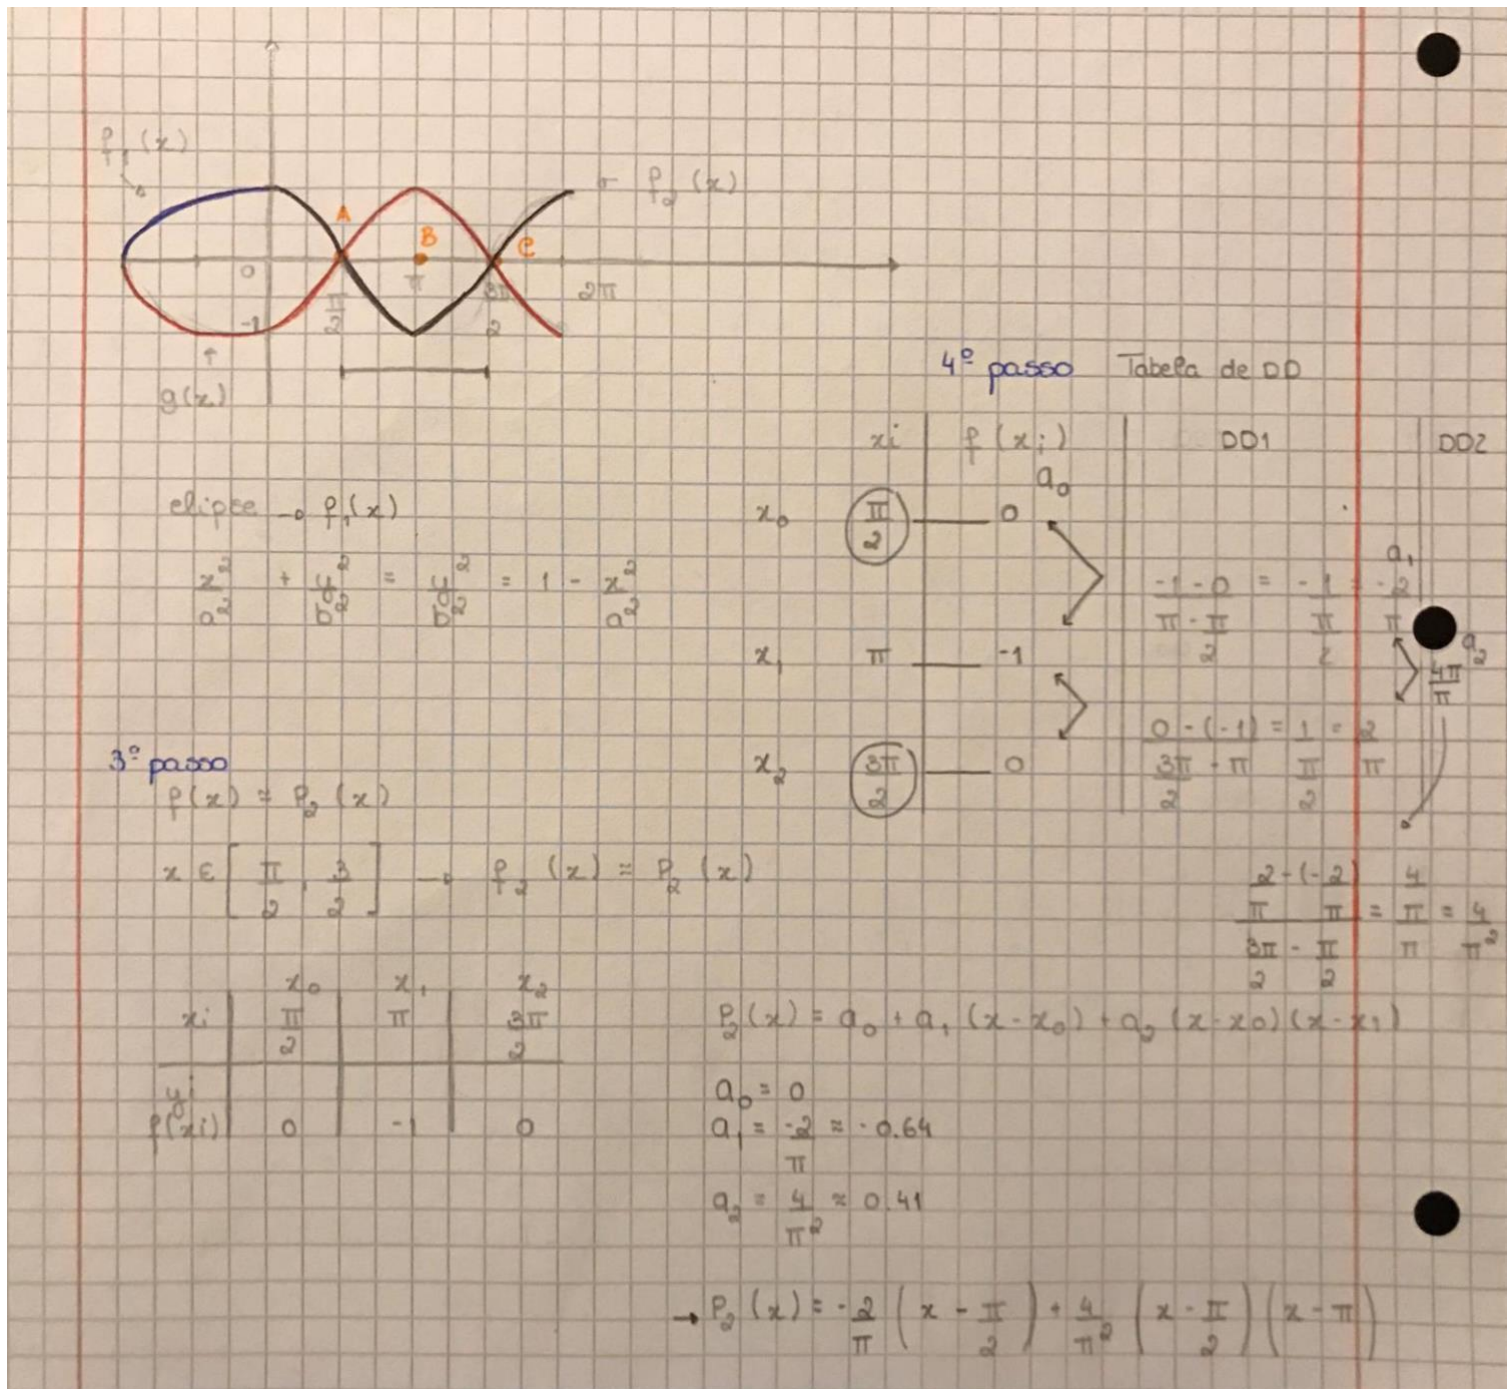 f₁(x)
f₂(x)
A
B
C
0
π/2
π
3π/2
2π
-1
g(x)
elipse → f₁(x)
x²/a² + y²/b² = y²/b² = 1 - x²/a²
3º passo
f(x) = P₂(x)
x ∈ [π/2, 3/2] → f₂(x) = P₂(x)
x₀ x₁ x₂
xi π/2 π 3π/2
yi
f(xi) 0 -1 0
4º passo Tabela de DD
xi f(xi) DD1 DD2
a₀
x₀ π/2 0
a₁
(-1-0)/(π-π/2) = -1/(π/2) = -2/π
x₁ π -1
a₂
4π/π
(0-(-1))/(3π/2-π) = 1/(π/2) = 2/π
x₂ 3π/2 0
(2/π-(-2/π))/(3π/2-π/2) = (4/π)/π = 4/π²
P₂(x) = a₀ + a₁(x-x₀) + a₂(x-x₀)(x-x₁)
a₀ = 0
a₁ = -2/π ≈ -0.64
a₂ = 4/π² ≈ 0.41
→ P₂(x) = -2/π (x - π/2) + 4/π² (x - π/2)(x - π)